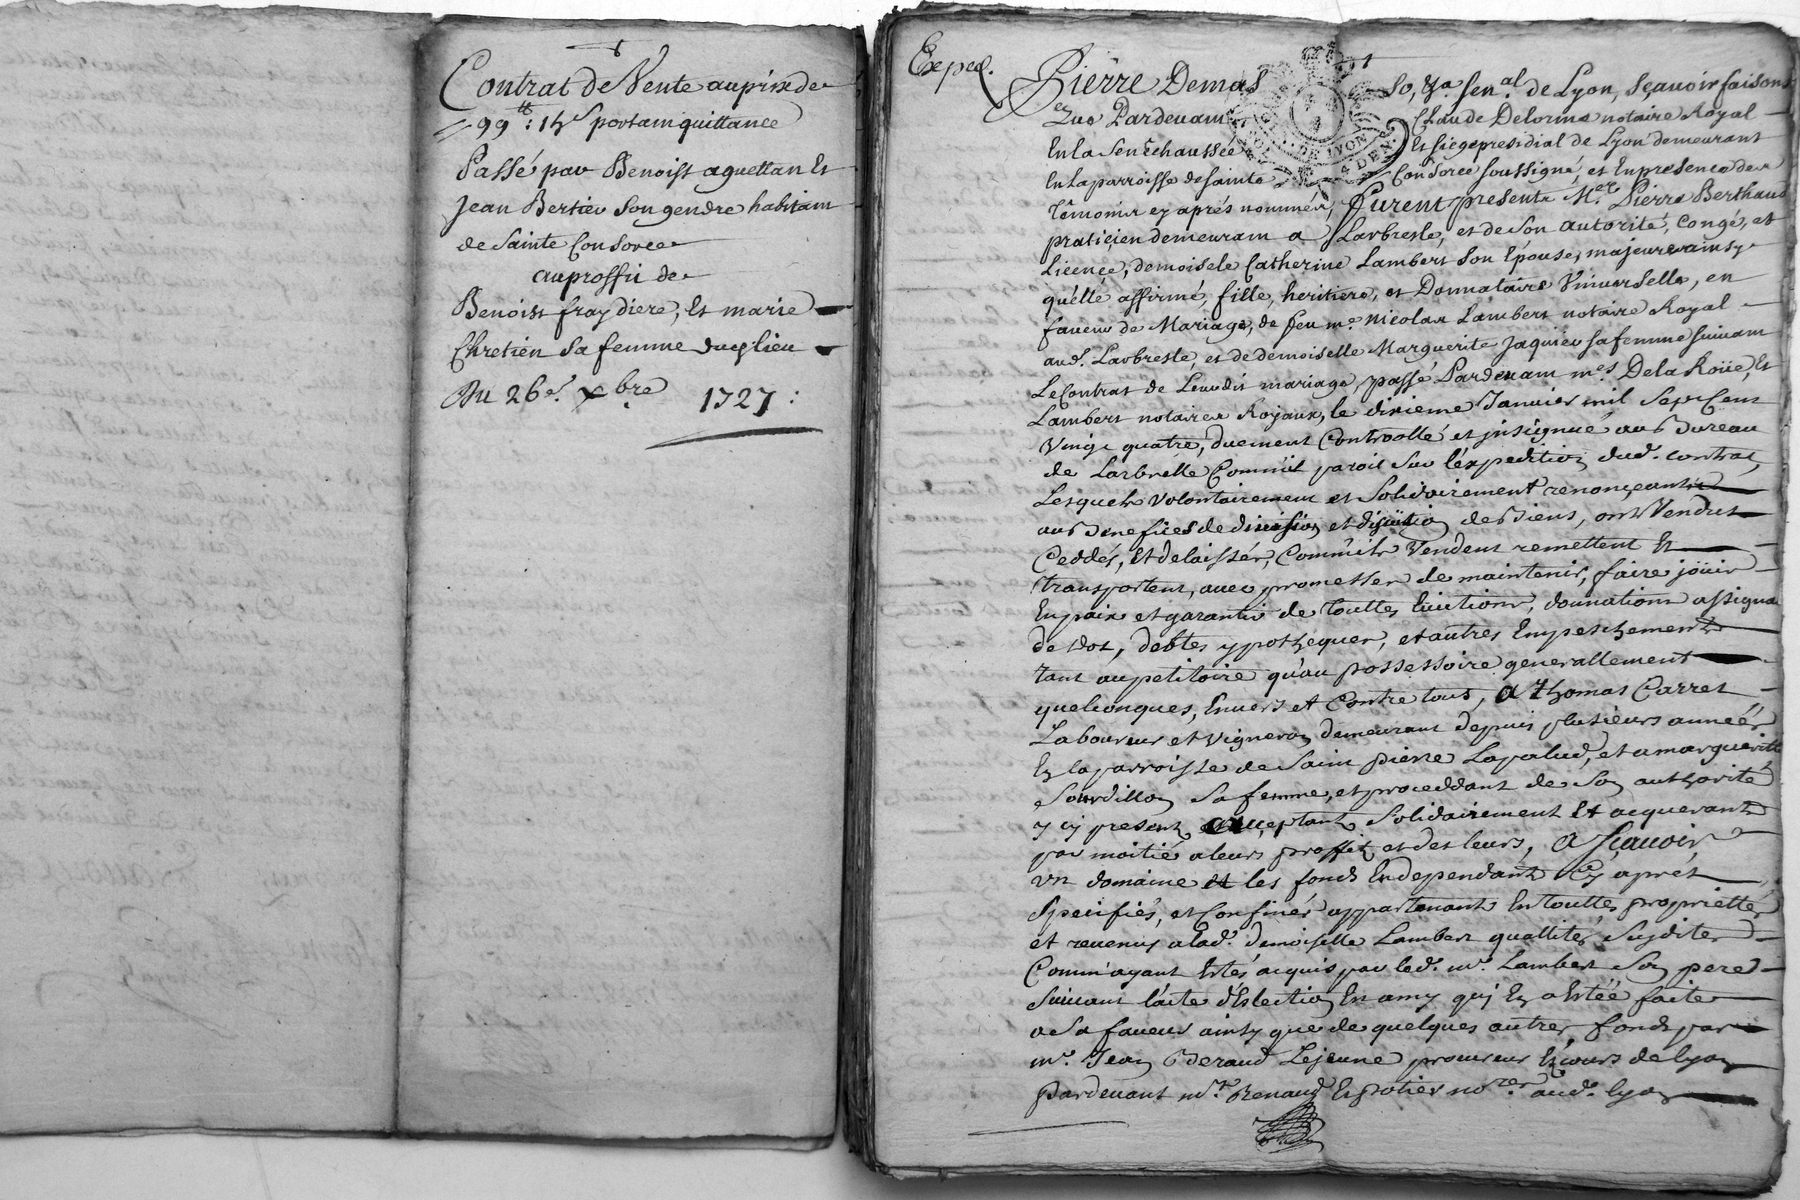 Contrat de Vente au prix de
99 tt: 15 s portant quittance
Passé par Benoist aguettan Et
Jean Bertier Son gendre habitant
de Sainte Consorce
au proffit de
Benoist fraydiere, Et marie
Chretien Sa femme dud. lieu
Du 26e. xbre 1727 :
Exped.
Pierre Demas So, Ga. Senal. de Lyon, Sçavoir faisons
Que Pardevant Claude Delorme notaire Royal
En la Senechaussée Et Siege presidial de Lyon demeurant
En la parroisse de Sainte Consorce Soussigné, et En presence des
Témoins cy aprés nommés, Furent presents Me. Pierre Berthaud
praticien demeurant a Larbresle, et de Son autorité, Congé, et
Licence, demoiselle Catherine Lambert Son Epouse, majeure ainsy
qu'elle affirme, fille, heritiere, et Donnataire Vniverselle, en
faveur de Mariage, de feu me. Nicolas Lambert notaire Royal
aud. Larbresle, et de demoiselle Marguerite Jaquier sa femme suivant
Le Contrat de Leurdit mariage, passé Pardevant mes. Dela Roüe, Et
Lambert notaires Royaux, le dixieme Janvier mil Sept Cent
Vingt quatre, duement Controollé et jnsignué au Bureau
de Larbresle Comm'il paroit Sur l'expedition dud. contrat,
Lesquels volontairement et Solidairement renonçeants
au Benefices de division et discution de Biens, ont Vendus
Ceddés, Et delaissés, Comm'ils Vendent remettent Et
transportent, avec promesses de maintenir, faire joüir
En paix et garantir de touttes Evictions, donnations assignaōn
de dot, debtes ypotheques, et autres Empeschements
tant au petitoire qu'au possessoire generallement
quelconques, Envers et Contre tous, A Thomas Carret
Laboureur et Vigneron demeurant depuis plusieurs années
En la parroisse de Saint pierre Lapalud, et a marguerite
Sourdillon Sa femme, et proceddant de Son authorité
y cy presents acceptants Solidairement Et acquerants
par moitié a leurs proffit et des leurs, A Sçavoir
vn domaine Et les fonds En dependants Cy aprés
Specifiés, et Confinés appartenants En touttes proprietté
et revenus a lad. demoiselle Lambert quallités Susdites
Comm'ayant Estés acquis par led. mr. Lambert Son pere
Suivant l'acte d'Eslection En amy qui En a Estée faite
a Sa faveur ainsy que de quelques autres fonds par
mr. Jean Beraud Lejeune procureur Es cours de Lyon
Pardevant mes. Renaud Et potier nores. aud. Lyon